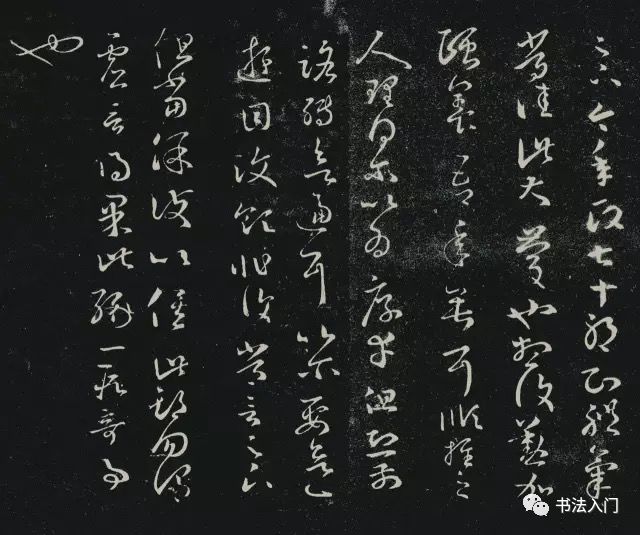 足下今年政七十耶知體氣
常佳此大慶也想復懃加
頤養吾年垂耳順推之
人理得爾以為厚幸但恐前
路轉欲逼耳以爾要欲一
遊目汶領非復常言足下
但當保護以俟此期勿謂
虛言得果此緣一段奇事
也
书法入门